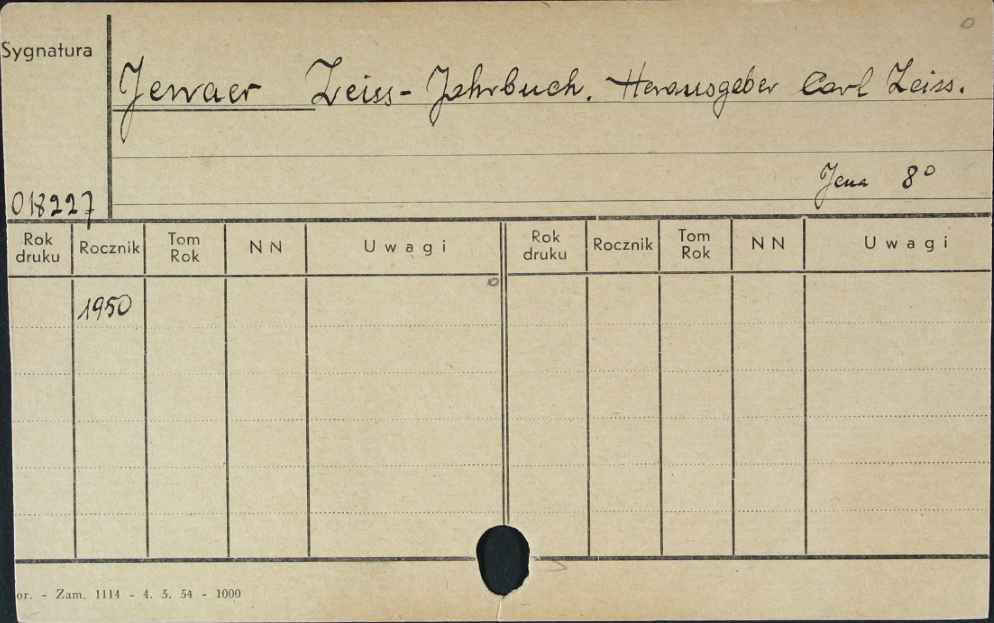 Sygnatura
Jenaer Zeiss-Jahrbuch. Herausgeber Carl Zeiss.
Jena 8°
018227
Rok druku Rocznik Tom Rok NN Uwagi Rok druku Rocznik Tom Rok NN Uwagi
1950
or. - Zam. 1114 - 4. 5. 54 - 1000